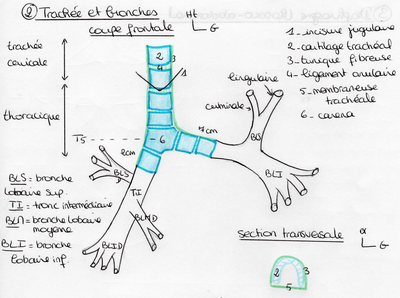 ② Trachée et bronches
coupe frontale
Ht
G
trachée
cervicale
thoracique
2
3
4
1
T5
6
2cm
7cm
lingulaire
culminale
BLS
BLI
BLS
TI
BLMD
BLID
1 _ incisure jugulaire
2 _ cartilage trachéal
3 _ tunique fibreuse
4 _ ligament annulaire
5 _ membraneuse
trachéale
6 _ carena
BLS = bronche
lobaire sup.
TI = tronc intermédiaire
BLM = bronche lobaire
moyenne
BLI = bronche
lobaire inf
section transversale
α
G
2
3
5